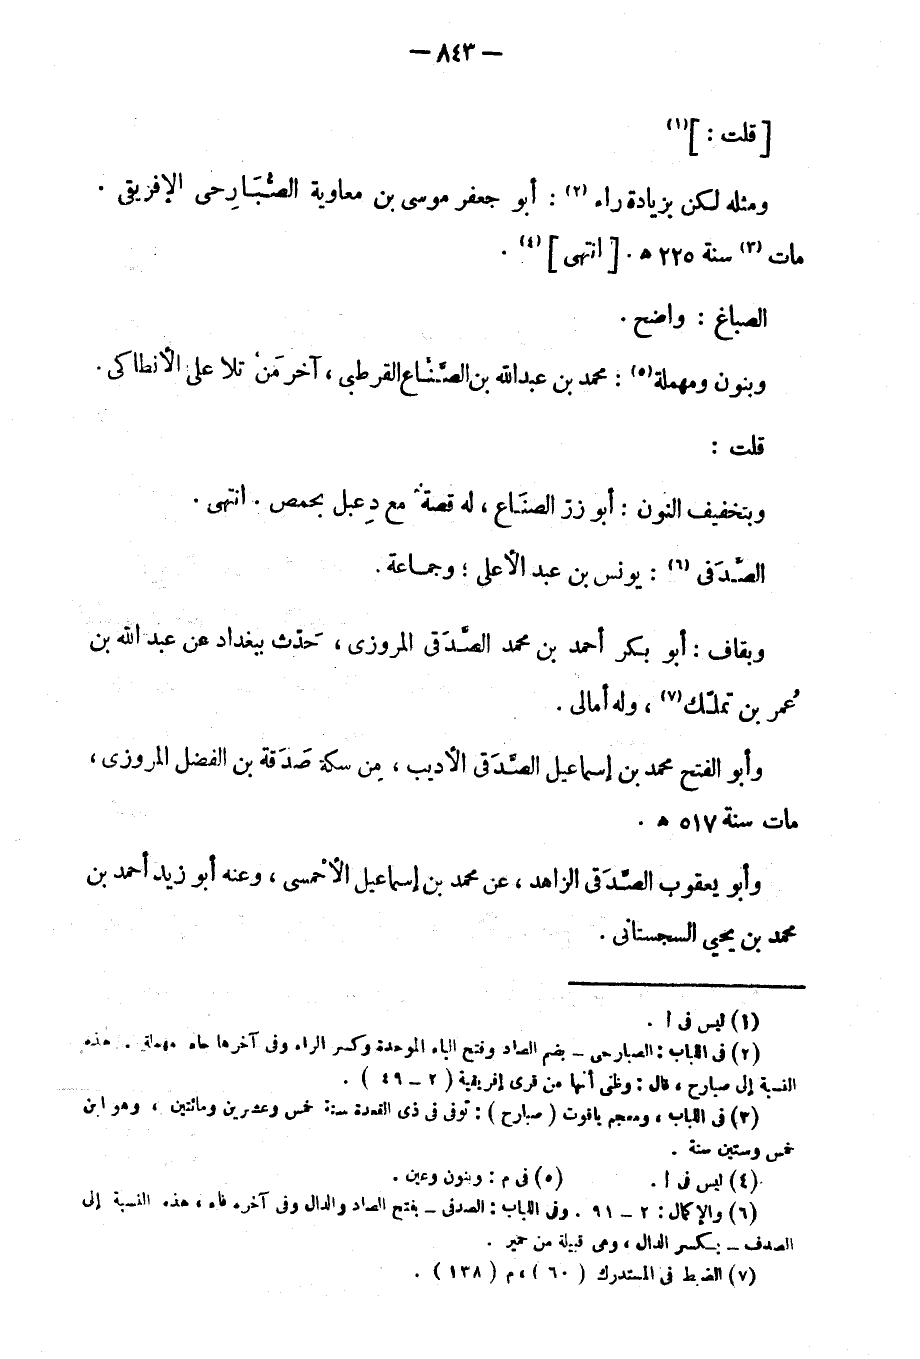 — ٨٤٣ —
[ قلت : ] (١)
ومثله لكن بزيادة راء (٢) : أبو جعفر موسى بن معاوية الصُّبَارِحى الإفريقى .
مات (٣) سنة ٢٢٥ ه . [ انتهى ] (٤) .
الصباغ : واضح .
وبنون ومهملة (٥) : محمد بن عبدالله بن الصَّنَّاع القرطبى ، آخر مَنْ تلا على الأنطاكى .
قلت :
وبتخفيف النون : أبو زر الصنَاع ، له قصة مع دِعبل بحمص . انتهى .
الصَّدَفى (٦) : يونس بن عبد الأعلى ؛ وجماعة .
وبقاف : أبو بكر أحمد بن محمد الصَّدَقى المروزى ، حَدّث ببغداد عن عبد الله بن
عُمر بن تملّك (٧) ، وله أمالى .
وأبو الفتح محمد بن إسماعيل الصَّدَقى الأديب ، مِن سكة صَدَقة بن الفضل المروزى ،
مات سنة ٥١٧ ه .
وأبو يعقوب الصَّدَقى الزاهد ، عن محمد بن إسماعيل الأحْمسى ، وعنه أبو زيد أحمد بن
محمد بن يحيى السجستانى .
(١) ليس فى ا .
(٢) فى اللباب : الصبارحى – بضم الصاد وفتح الباء الموحدة وكسر الراء وفى آخرها حاء مهملة . هذه
النسبة إلى صبارح ، قال : وظنى أنها من قرى إفريقية ( ٢ – ٤٩ ) .
(٣) فى اللباب ، ومعجم ياقوت ( صبارح ) : توفى فى ذى القعدة سنة خمس وعشرين ومائتين ، وهو ابن
خمس وستين سنة .
(٤) ليس فى ا . (٥) فى م : وبنون وعين .
(٦) والإكمال : ٢ – ٩١ . وفى اللباب : الصدفى – بفتح الصاد والدال وفى آخره فاء ، هذه النسبة إلى
الصدف – بكسر الدال ، وهى قبيلة من حمير .
(٧) الضبط فى المستدرك ( ٦٠ ) ، م ( ١٣٨ ) .